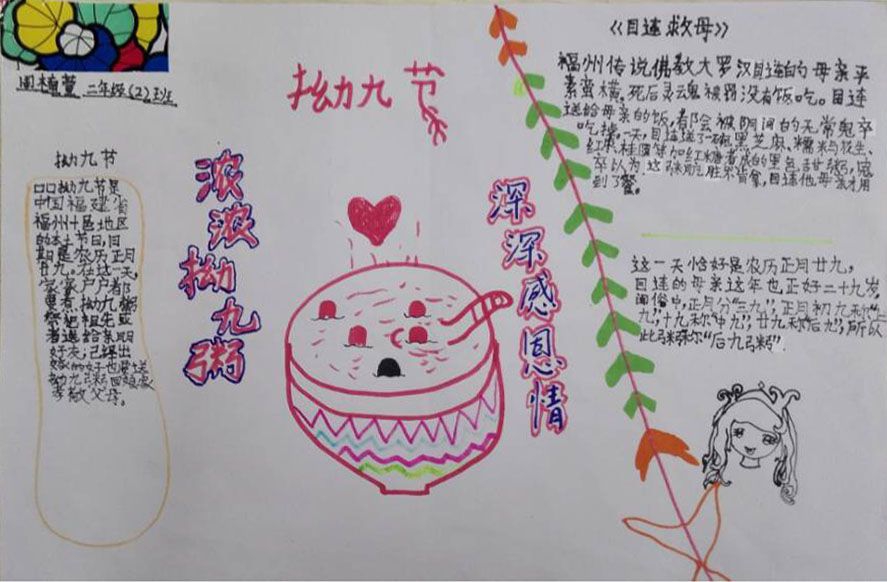 周植萱 二年级(2)班
拗九节
拗九节
拗九节是
中国福建省
福州十邑地区
的本土节日,日
期是农历正月
廿九。在这一天,
家家户户都
要煮“拗九粥”
祭祀祖先或
者送给亲朋
好友,已嫁出
嫁的好也要送
拗九粥回娘家
孝敬父母。
浓浓拗九粥
深深感恩情
《目连救母》
福州传说佛教大罗汉目连的母亲平
素蛮横,死后灵魂被罚没有饭吃。目连
送给母亲的饭,都会被阴间的无常鬼卒
吃掉。一天,目连送了一碗黑芝麻、糯米与花生、
红枣、桂圆等加红糖煮成的黑色甜粥,鬼
卒以为这
到了餐。
这一天恰好是农历正月廿九,
目连的母亲这年也正好二十九岁,
闽俗中,正月分“三九”,正月初九称“上
九”,十九称“中九”,廿九称“后九”,所以
此粥称“后九粥”。